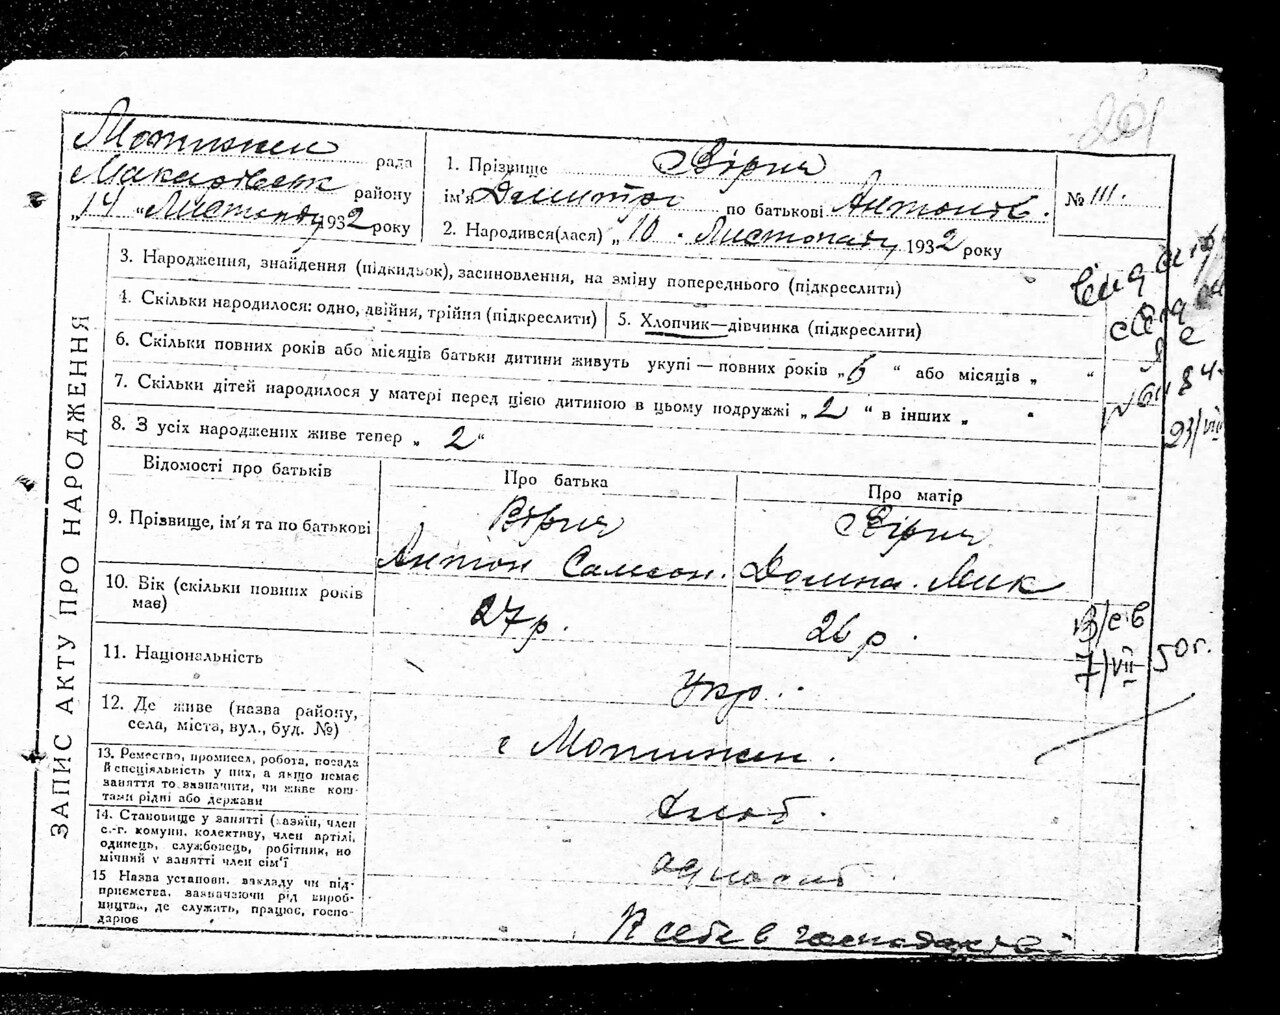 201
Мотижин рада
Макарівськ району
„14“ Листопаду 1932 року
1. Прізвище Вірич
ім'я Дмитро по батькові Антонів.
2. Народився(лася) „10. Листопаду 1932 року
№ 111.
3. Народження, знайдення (підкидьок), засиновлення, на зміну попереднього (підкреслити)
4. Скільки народилося: одно, двійня, трійня (підкреслити)
5. Хлопчик—дівчинка (підкреслити)
6. Скільки повних років або місяців батьки дитини живуть укупі — повних років „5“ або місяців „ “
7. Скільки дітей народилося у матері перед цією дитиною в цьому подружжі „2“ в інших „ “
8. З усіх народжених живе тепер „2“
ЗАПИС АКТУ ПРО НАРОДЖЕННЯ
Відомості про батьків
Про батька
Про матір
9. Прізвище, ім'я та по батькові
Вірич
Антон Самсон.
Вірич
Домина Мик
10. Вік (скільки повних років має)
27 р.
26 р.
11. Національність
Укр.
12. Де живе (назва району,
села, міста, вул., буд. №)
с Мотижин.
13. Ремество, промисел, робота, посада
й спеціяльність у них, а якщо немає
заняття то зазначити, чи живе кош-
тами рідні або держави
хліб.
14. Становище у занятті (хазяїн, член
с.-г. комуни, колективу, член артілі,
одинець, службовець, робітник, но
мічний у занятті член сім'ї
одноосіб.
15 Назва установи, закладу чи під-
приємства, зазначаючи рід вироб-
ництва, де служить, працює, госпо-
дарює
У себе в господарстві
23/VII
7/VII 50 г.